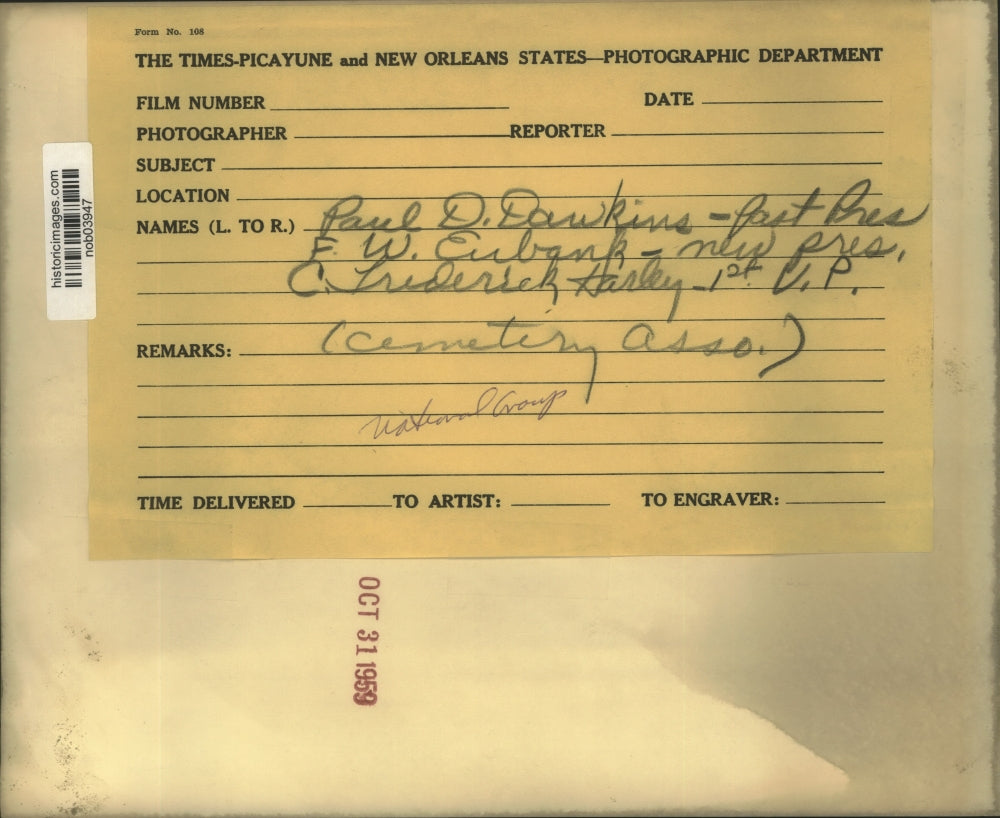 Form No. 108
THE TIMES-PICAYUNE and NEW ORLEANS STATES—PHOTOGRAPHIC DEPARTMENT
FILM NUMBER DATE
PHOTOGRAPHER REPORTER
SUBJECT
LOCATION
NAMES (L. TO R.) Paul D. Dawkins - Past Pres
F. W. Eubank - new pres.
C. Frederick Harley - 1st V. P.
REMARKS: (Cemetery Asso.)
National Group
TIME DELIVERED TO ARTIST: TO ENGRAVER:
historicimages.com
nob03947
OCT 31 1959